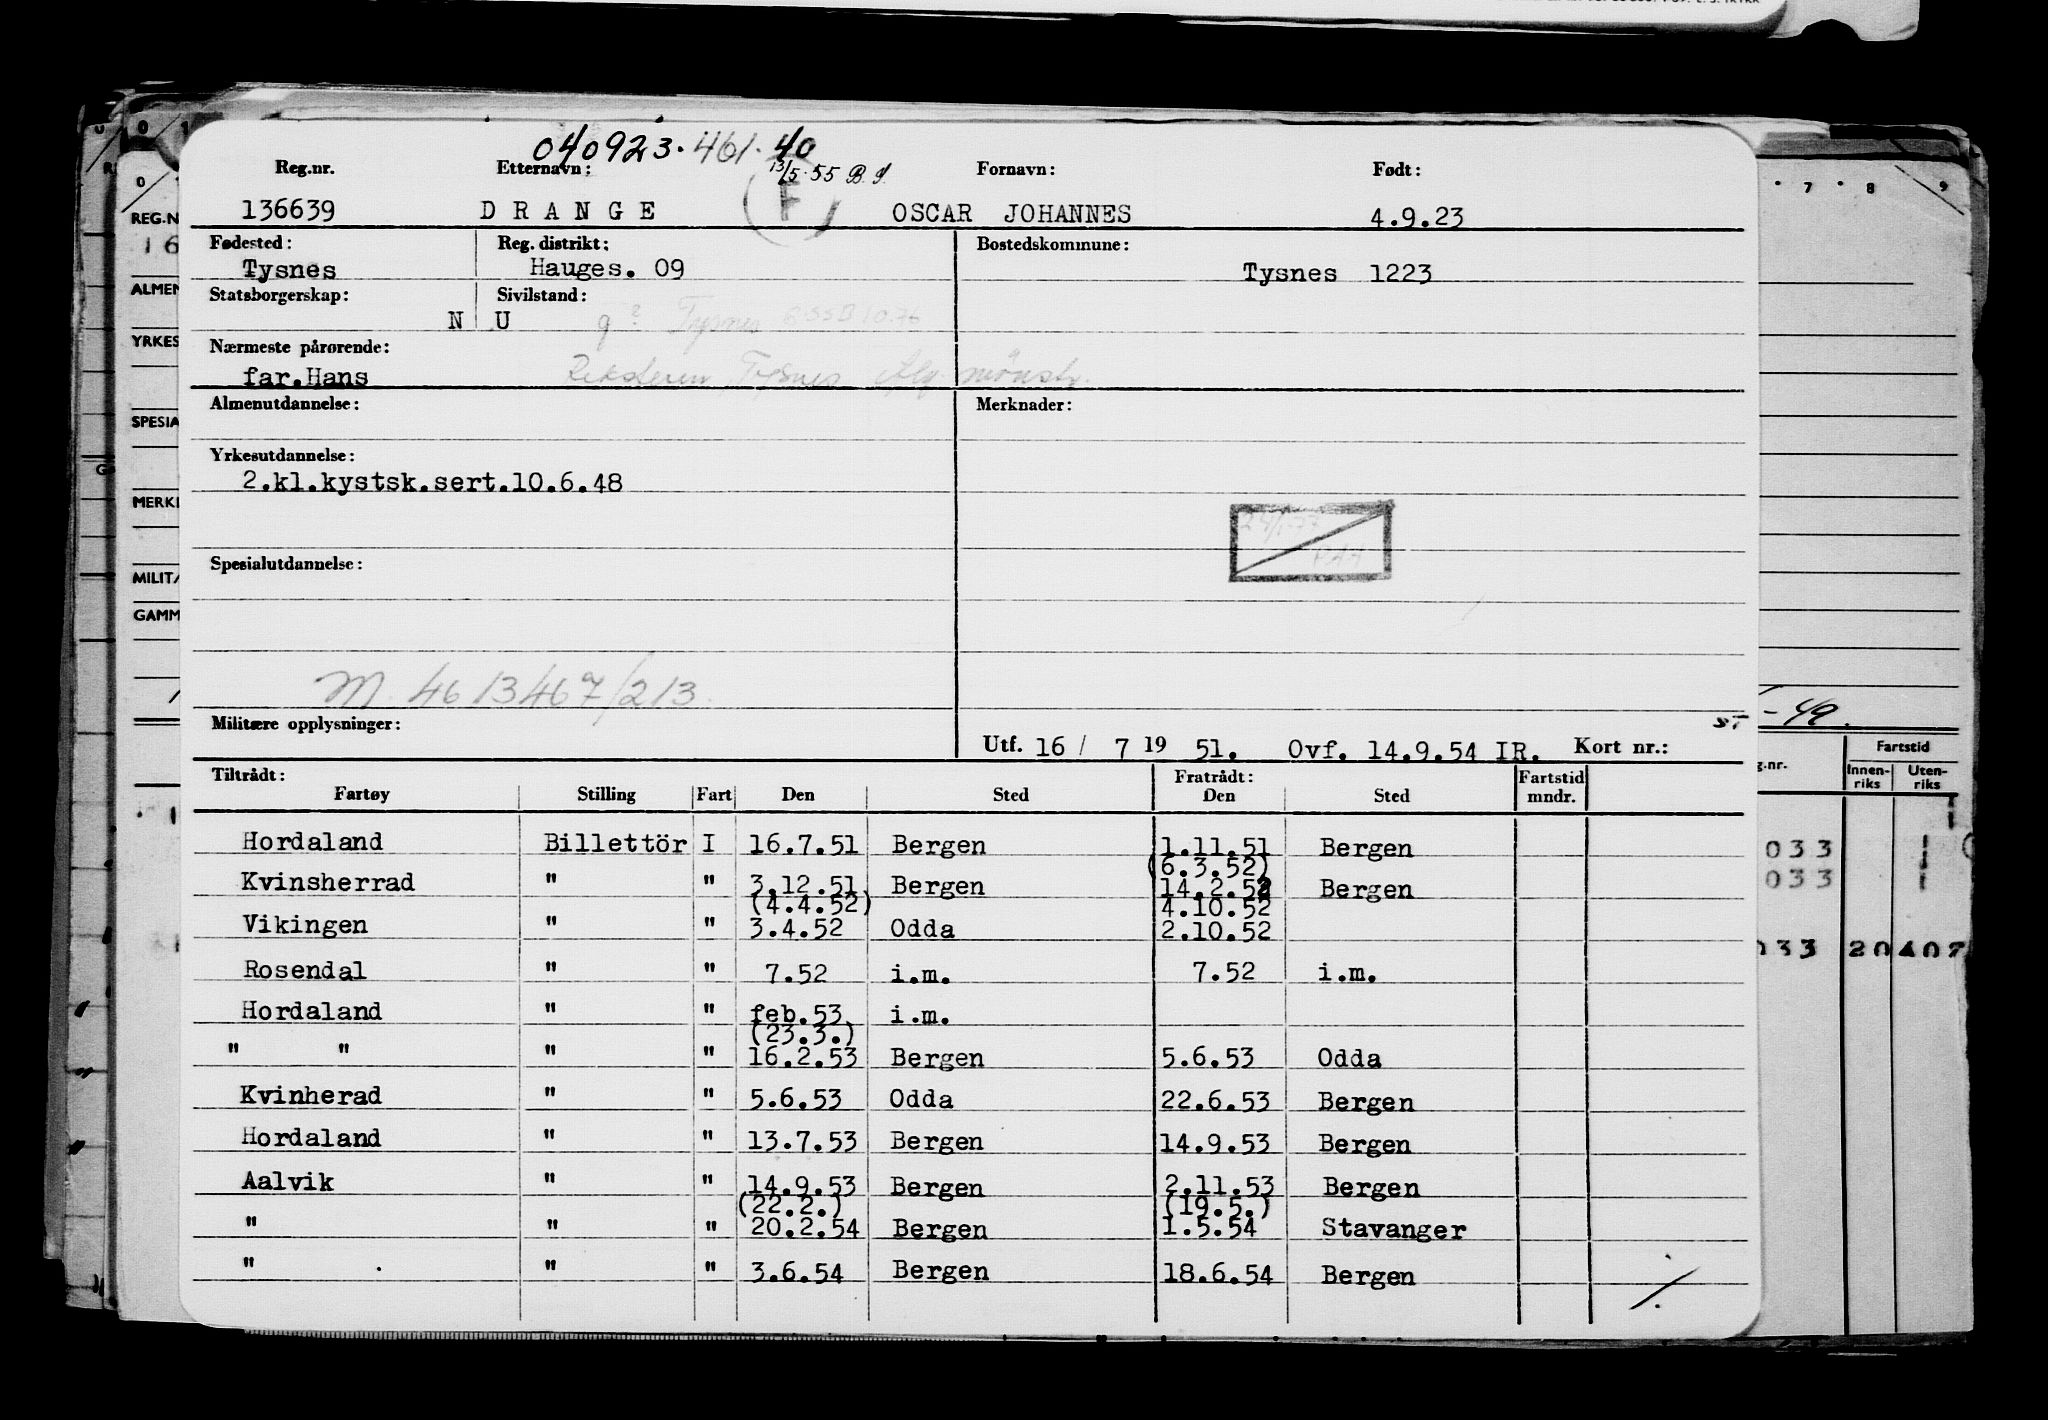 040923.461.40
Reg.nr. Etternavn: 13/5.55 B.S. Fornavn: Født:
136639 DRANGE (F) OSCAR JOHANNES 4.9.23
Fødested: Reg. distrikt: Bostedskommune:
Tysnes Hauges. 09 Tysnes 1223
Statsborgerskap: Sivilstand:
N U g? Tysnes
Nærmeste pårørende:
far.Hans Reksteren Tysnes mönstr.
Almenutdannelse: Merknader:
Yrkesutdannelse:
2.kl.kystsk.sert.10.6.48
Spesialutdannelse:
M. 4613467/213.
Militære opplysninger:
Utf. 16 / 7 19 51. Ovf. 14.9.54 IR. Kort nr.: ST
Tiltrådt: Fratrådt: Fartstid
Fartøy Stilling Fart Den Sted Den Sted mndr.
Hordaland Billettör I 16.7.51 Bergen 1.11.51 Bergen
(6.3.52)
Kvinsherrad " " 3.12.51 Bergen 14.2.52 Bergen
(4.4.52) 4.10.52
Vikingen " " 3.4.52 Odda 2.10.52
Rosendal " " 7.52 i.m. 7.52 i.m.
Hordaland " " feb.53 i.m.
(23.3.)
" " " " 16.2.53 Bergen 5.6.53 Odda
Kvinherad " " 5.6.53 Odda 22.6.53 Bergen
Hordaland " " 13.7.53 Bergen 14.9.53 Bergen
Aalvik " " 14.9.53 Bergen 2.11.53 Bergen
(22.2.) (19.5.)
" " " 20.2.54 Bergen 1.5.54 Stavanger
" " " 3.6.54 Bergen 18.6.54 Bergen
REG.N
16
ALMEN
YRKES
SPESIA
MERKI
MILIT
GAMM
7 8 9
-49.
Fartstid
g.nr. Innen-riks Uten-riks
033
033
033 20407